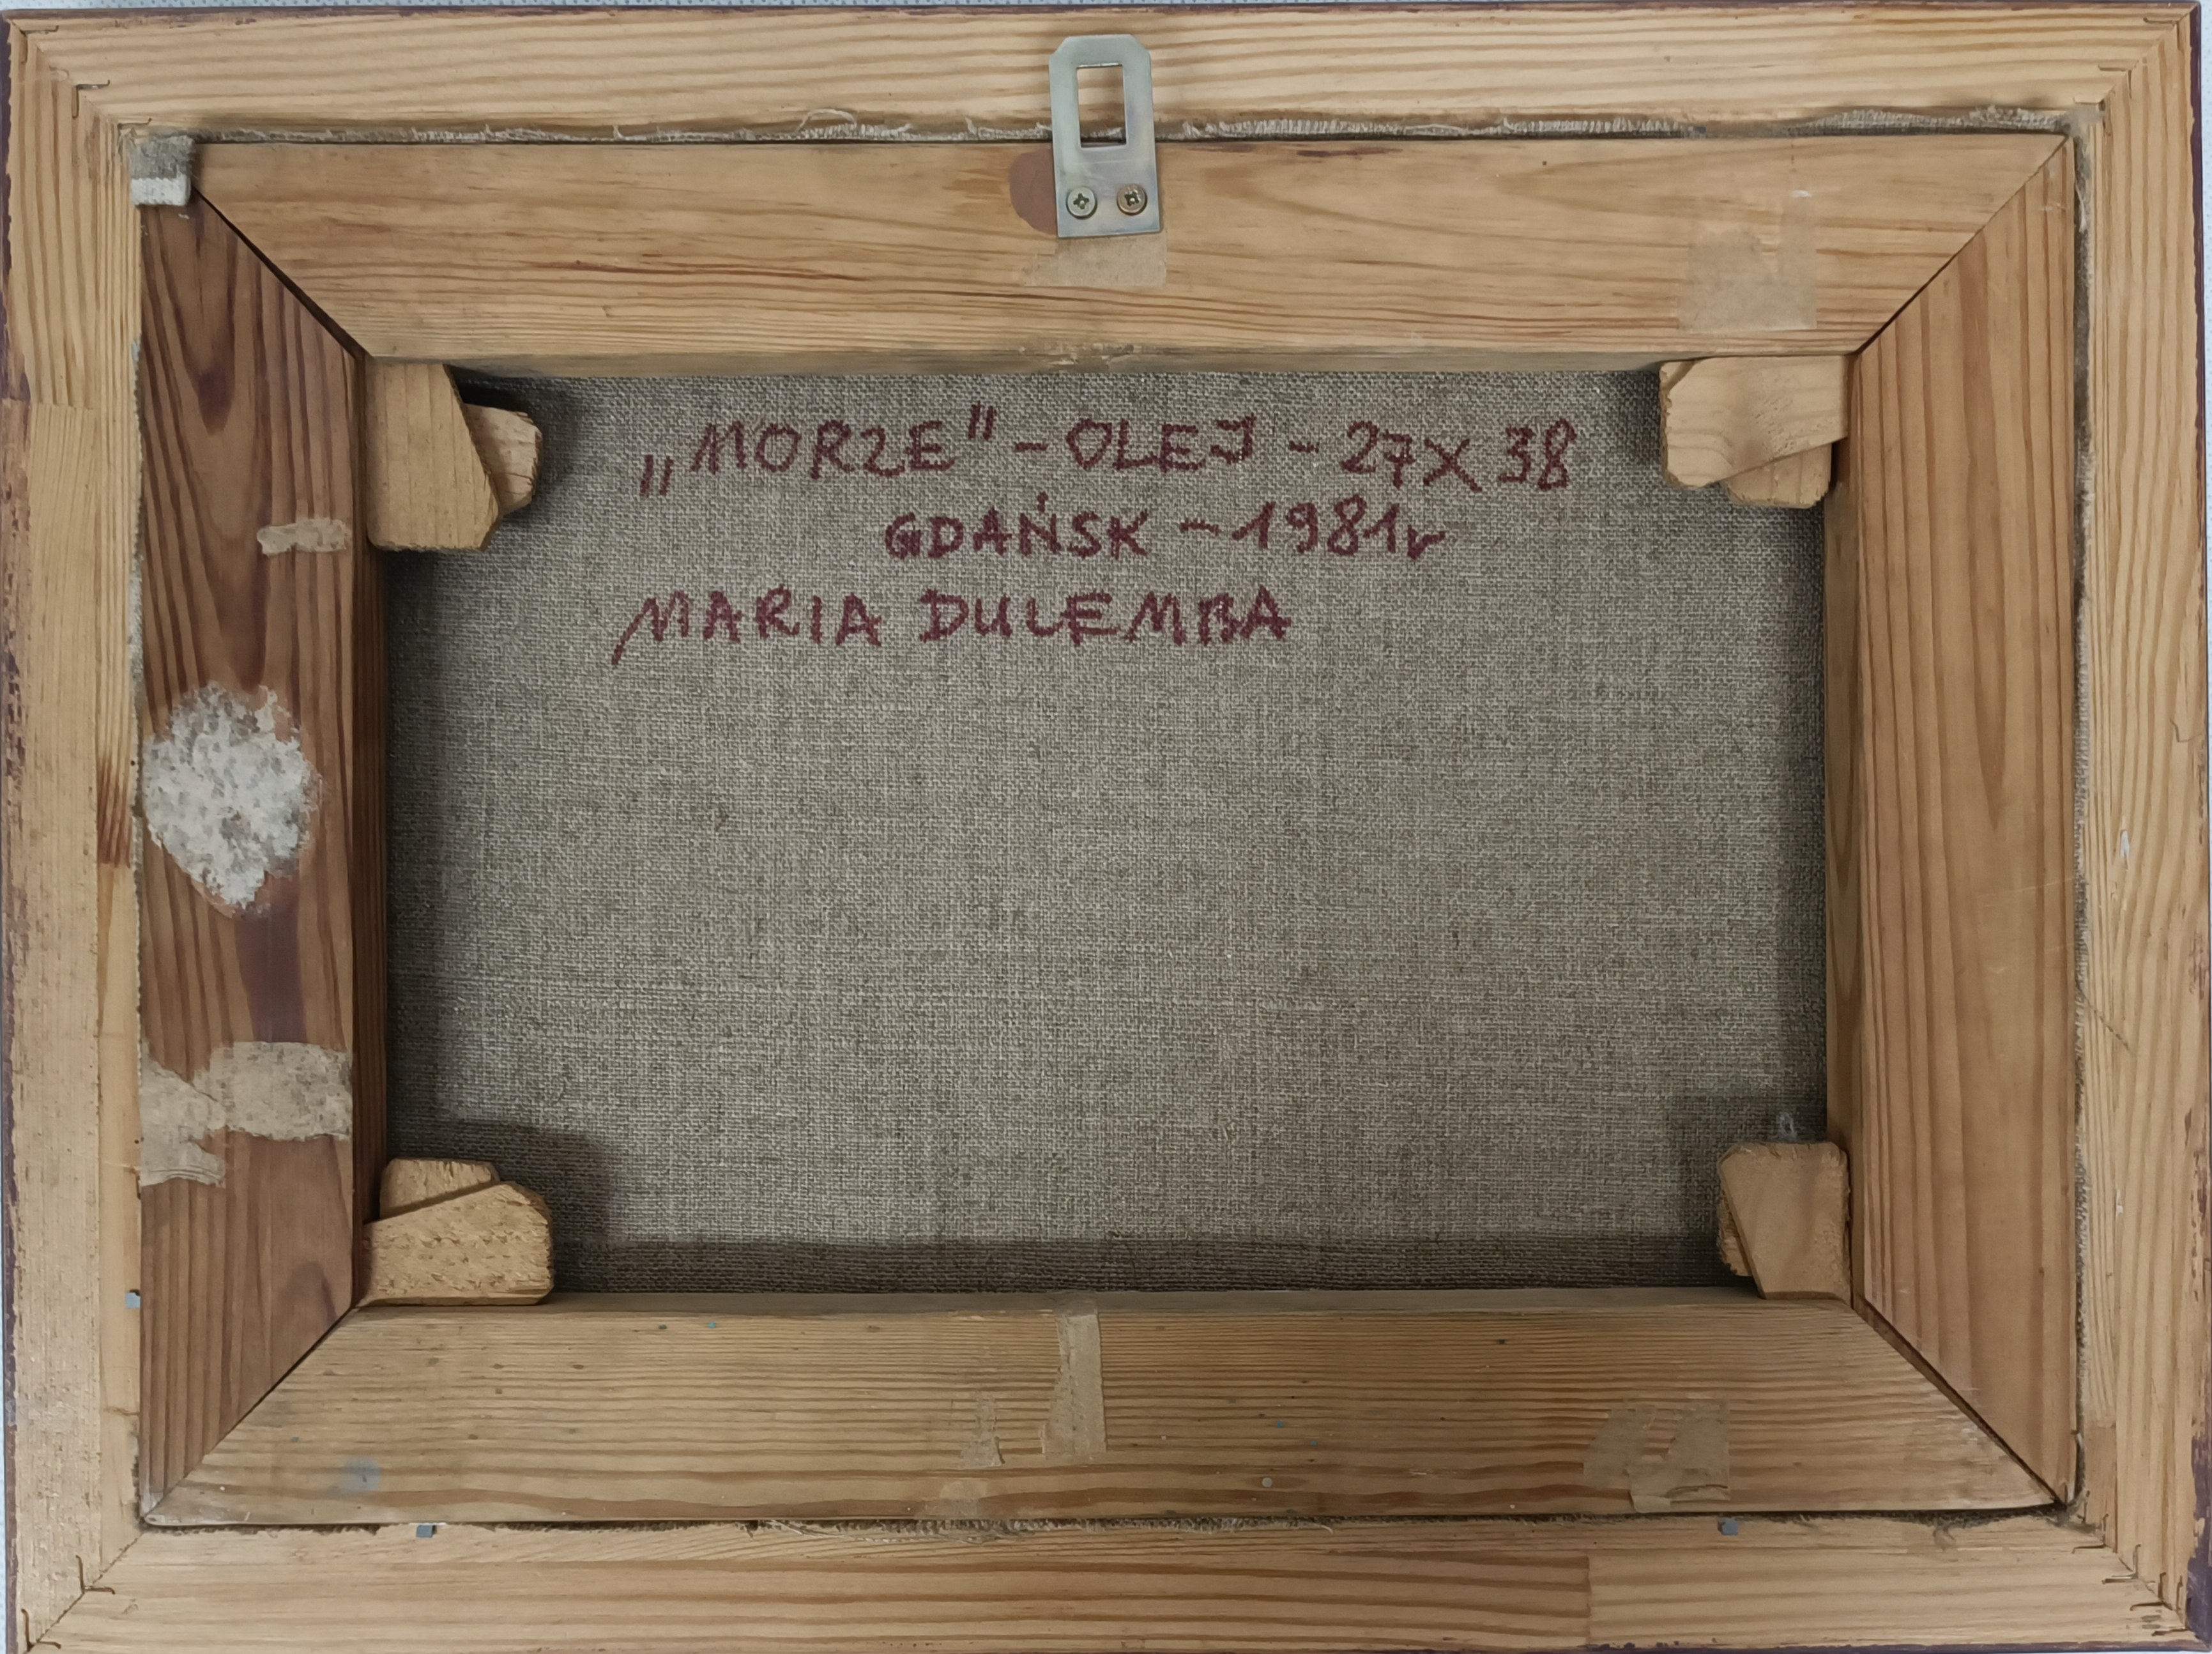 „MORZE" - OLEJ - 27X38
GDAŃSK - 1981r
MARIA DULEMBA